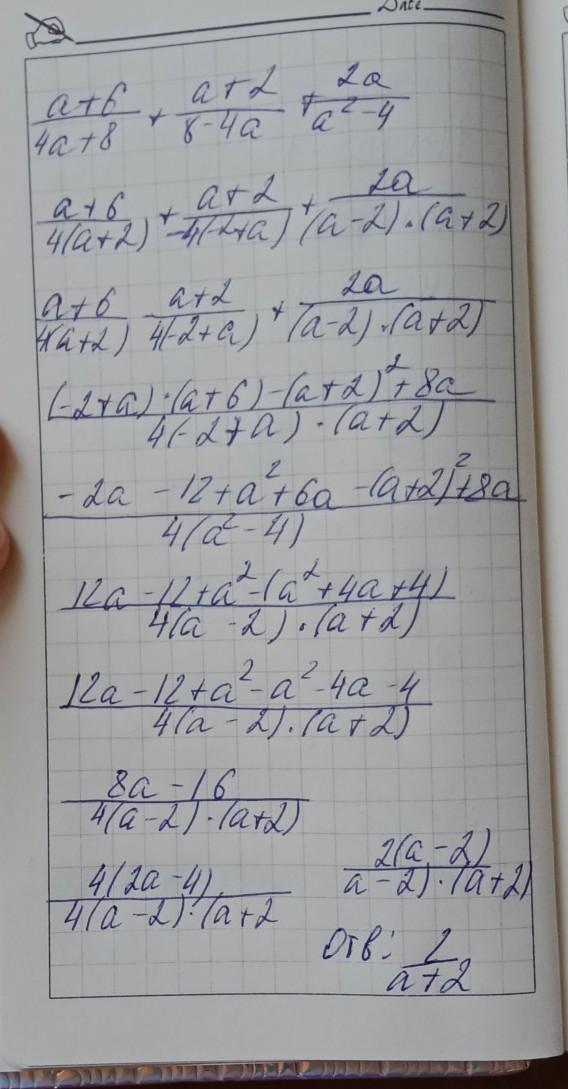 Date
(a+6)/(4a+8) + (a+2)/(8-4a) + 2a/(a²-4)
(a+6)/(4(a+2)) + (a+2)/(-4(-2+a)) + 2a/((a-2)·(a+2))
(a+6)/(4(a+2)) (a+2)/(4(-2+a)) + 2a/((a-2)·(a+2))
((-2+a)·(a+6)-(a+2)²+8a)/(4(-2+a)·(a+2))
(-2a -12+a²+6a -(a+2)²+8a)/(4(a²-4))
(12a-12+a²-(a²+4a+4))/(4(a-2)·(a+2))
(12a-12+a²-a²-4a-4)/(4(a-2)·(a+2))
(8a-16)/(4(a-2)·(a+2))
4(2a-4)/(4(a-2)·(a+2
2(a-2)/(a-2)·(a+2)
Отв: 2/(a+2)